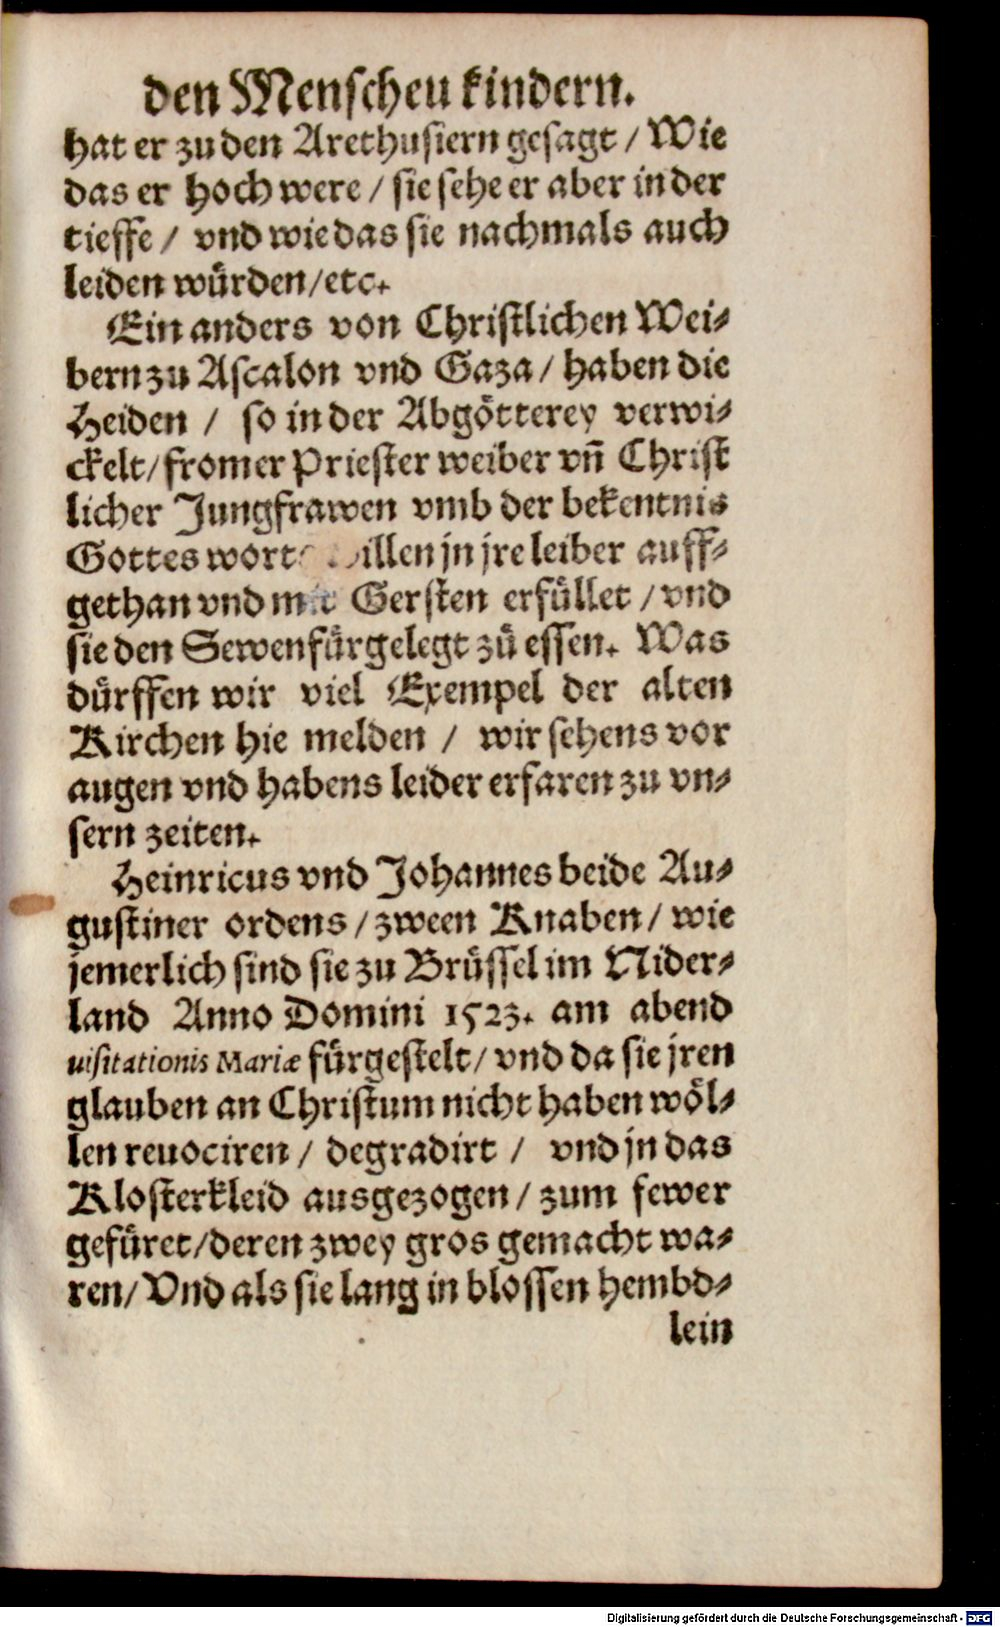 den Menscheu kindern.
hat er zu den Arethusiern gesagt / Wie
das er hoch were / sie sehe er aber in der
tieffe / vnd wie das sie nachmals auch
leiden würden/etc.
Ein anders von Christlichen Wei⸗
bern zu Ascalon vnd Gaza / haben die
Heiden / so in der Abgötterey verwi⸗
ckelt/fromer Priester weiber vñ Christ
licher Jungfrawen vmb der bekentnis
Gottes jn jre leiber auff⸗
gethan vnd mit Gersten erfüllet / vnd
sie den Sewen fürgelegt zů essen. Was
dürffen wir viel Exempel der alten
Kirchen hie melden / wir sehens vor
augen vnd habens leider erfaren zu vn⸗
sern zeiten.
Heinricus vnd Johannes beide Au⸗
gustiner ordens / zween Knaben / wie
jemerlich sind sie zu Brüssel im Nider⸗
land Anno Domini 1523. am abend
uisitationis Mariæ fürgestelt / vnd da sie jren
glauben an Christum nicht haben wöl⸗
len reuociren / degradirt / vnd jn das
Klosterkleid ausgezogen / zum fewer
gefüret/deren zwey gros gemacht wa⸗
ren/ Vnd als sie lang in blossen hembd⸗
lein
Digitalisierung gefördert durch die Deutsche Forschungsgemeinschaft - DFG